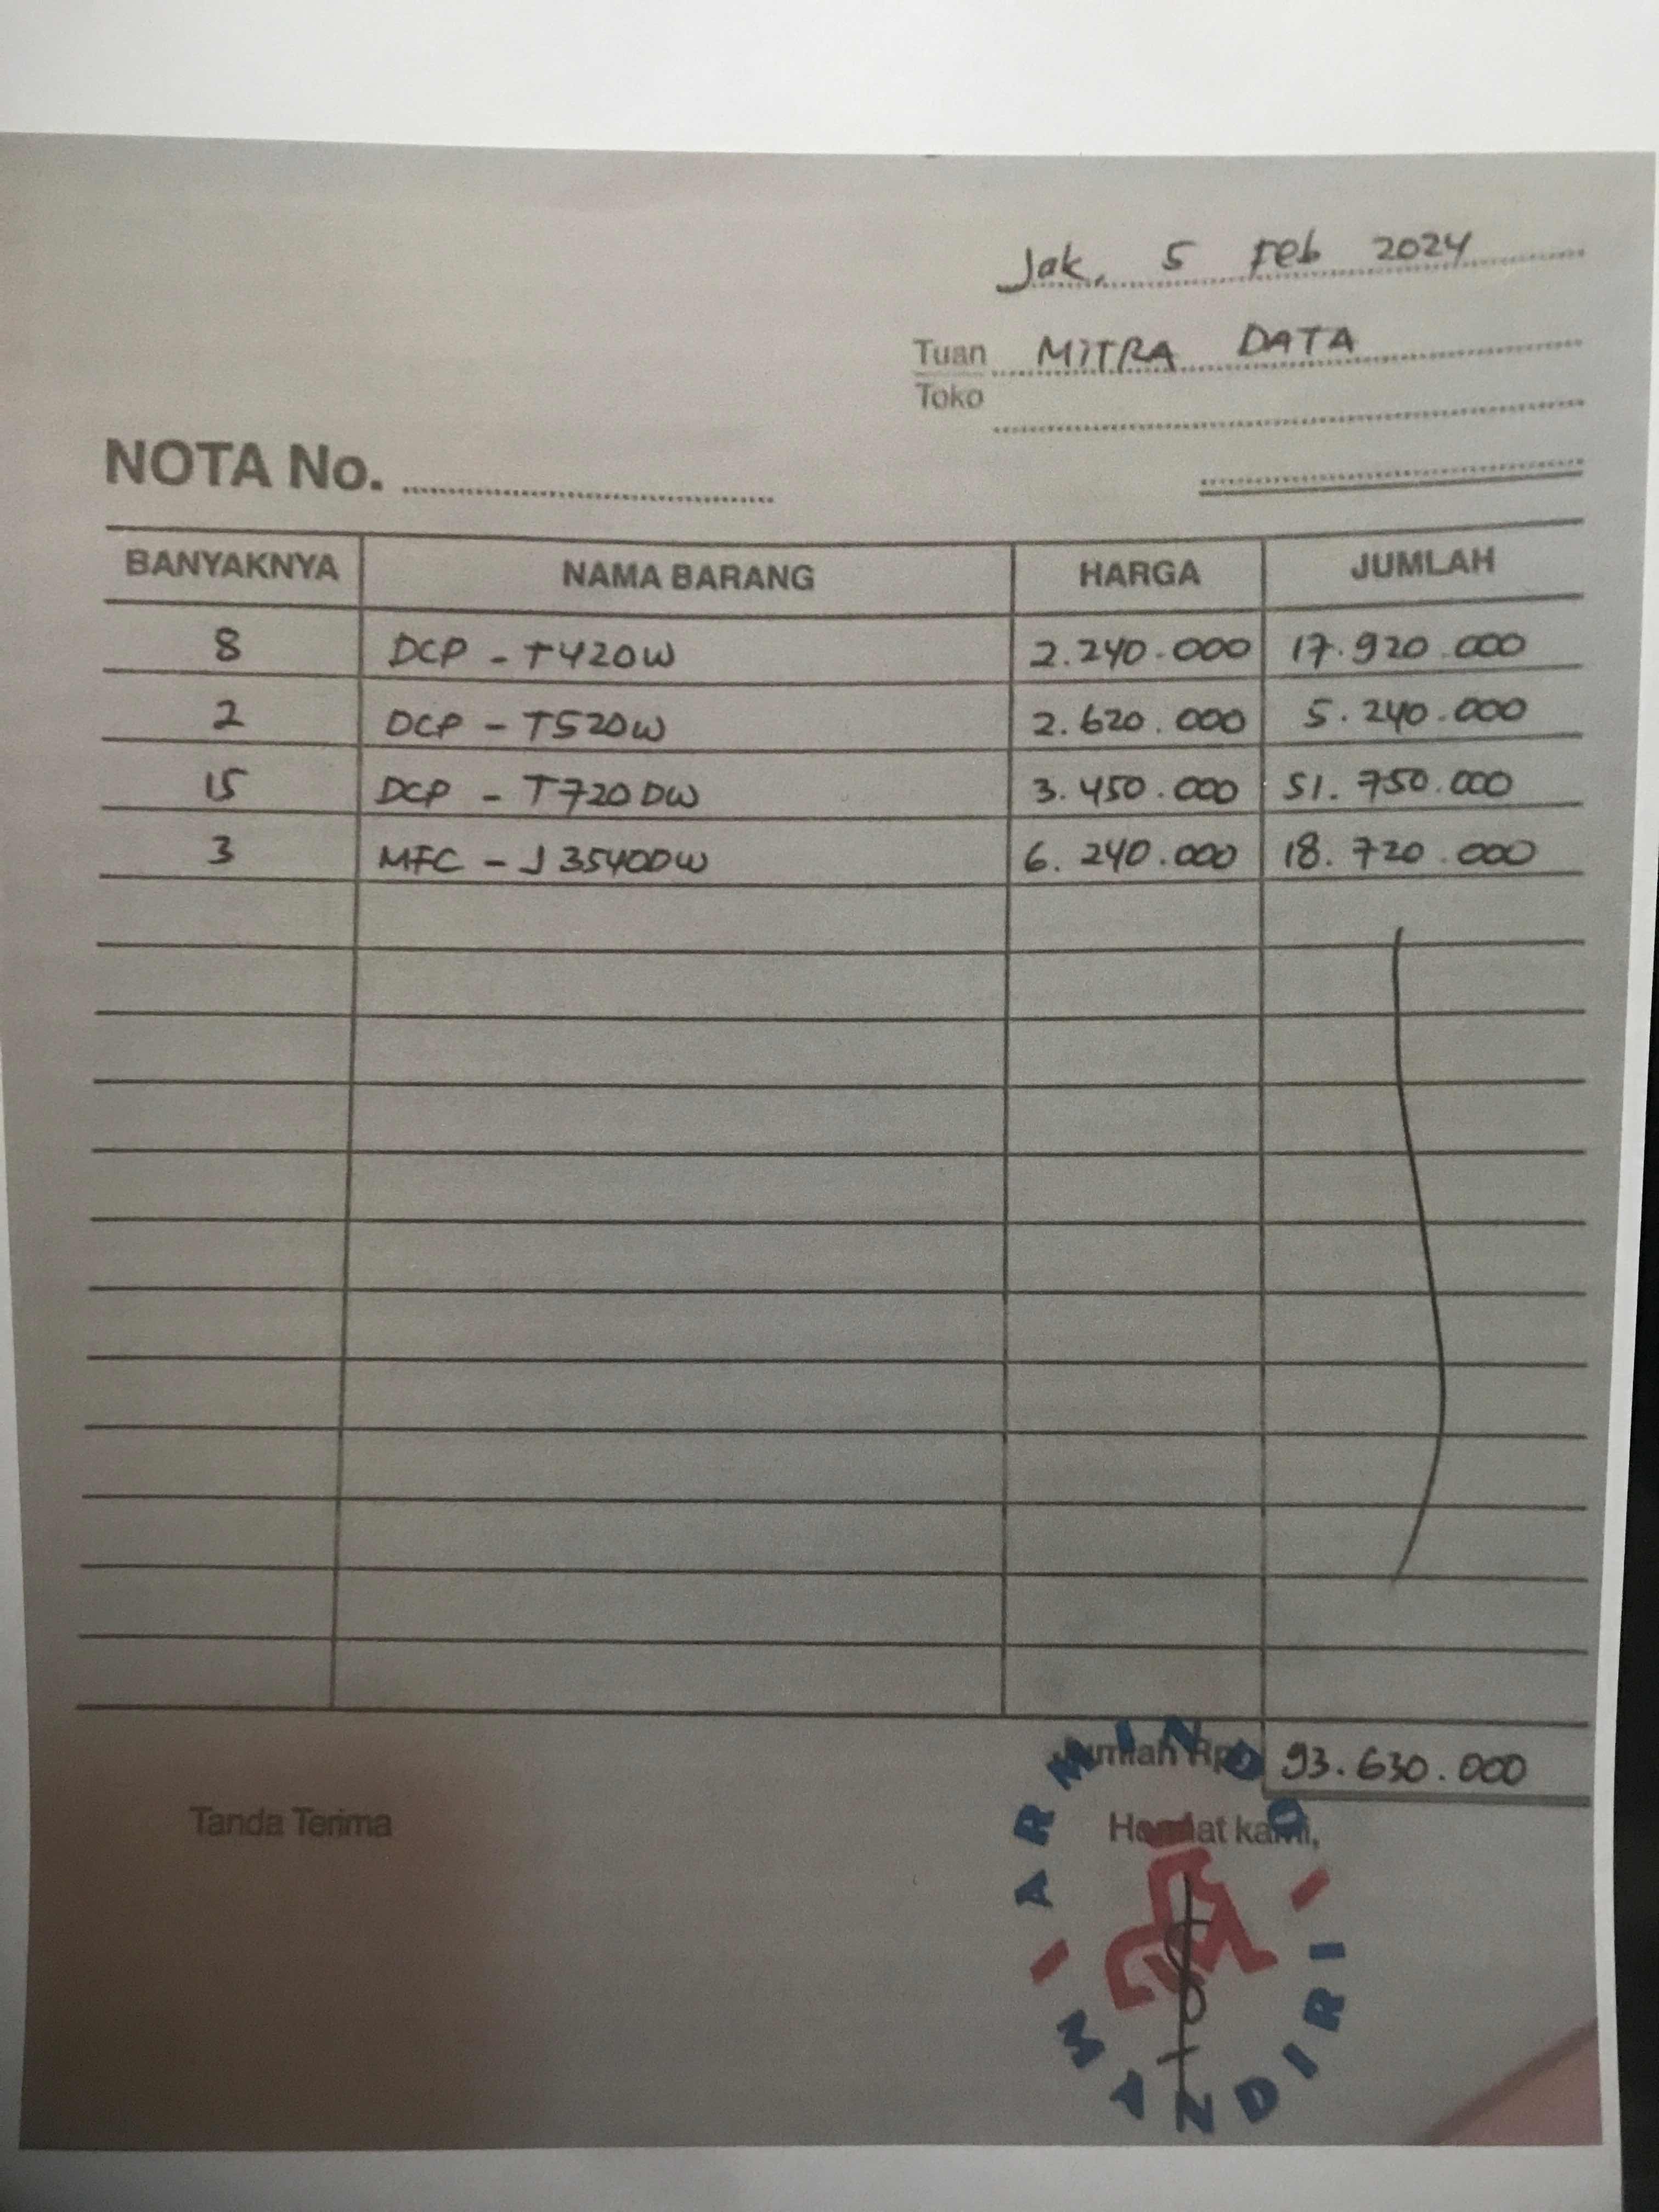 Jak, 5 Feb 2024
Tuan MITRA DATA
Toko
NOTA No.
BANYAKNYA NAMA BARANG HARGA JUMLAH
8 DCP - T420W 2.240.000 17.920.000
2 DCP - T520W 2.620.000 5.240.000
15 DCP - T720DW 3.450.000 51.750.000
3 MFC - J3540DW 6.240.000 18.720.000
Jumlah Rp. 93.630.000
Tanda Terima Hormat kami,
ARMINDO
MANDIRI